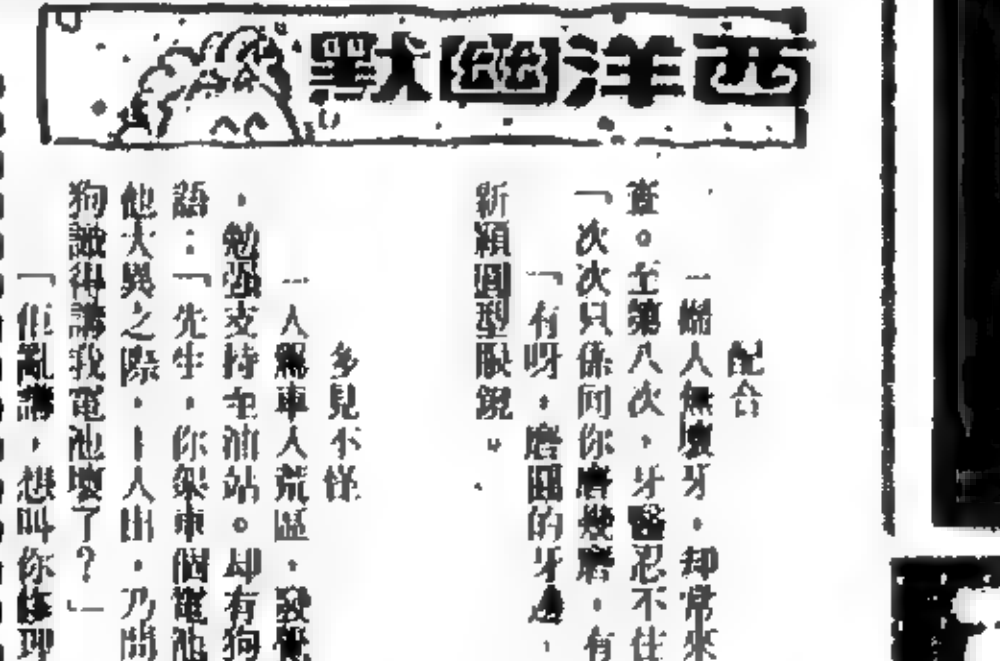 西洋幽默
配合
一婦人無壞牙，却常來
查。至第八次，牙醫忍不住
「次次只係同你磨幾磨，有
「有呀，磨圓的牙邊，
新穎圓型眼鏡。
多見不怪
一人駕車入荒區，發覺
，勉強支持至油站。却有狗
語：「先生，你架車個電池
他大異之際，一人出，乃問
狗識得講我電池壞了？」
「佢亂講，想叫你修理